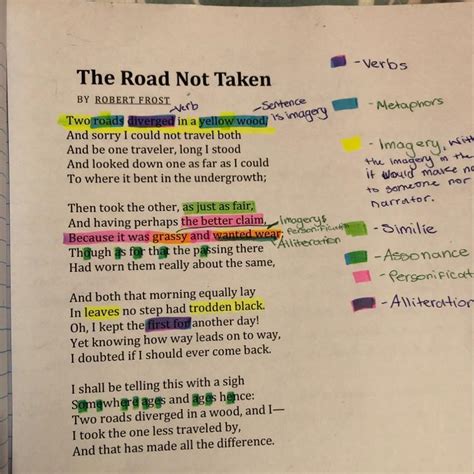 The Road Not Taken
BY ROBERT FROST
-Verb
-Sentence is imagery
Two roads diverged in a yellow wood,
And sorry I could not travel both
And be one traveler, long I stood
And looked down one as far as I could
To where it bent in the undergrowth;
Then took the other, as just as fair,
And having perhaps the better claim,
Because it was grassy and wanted wear,
-Imagery &
Personification
Alliteration
Though as for that the passing there
Had worn them really about the same,
And both that morning equally lay
In leaves no step had trodden black.
Oh, I kept the first for another day!
Yet knowing how way leads on to way,
I doubted if I should ever come back.
I shall be telling this with a sigh
Somewhere ages and ages hence:
Two roads diverged in a wood, and I—
I took the one less traveled by,
And that has made all the difference.
-Verbs
-Metaphors
-Imagery, With
the imagery in the
it would make no
to someone nor
narrator.
-Similie
-Assonance
-Personificat
-Alliteration